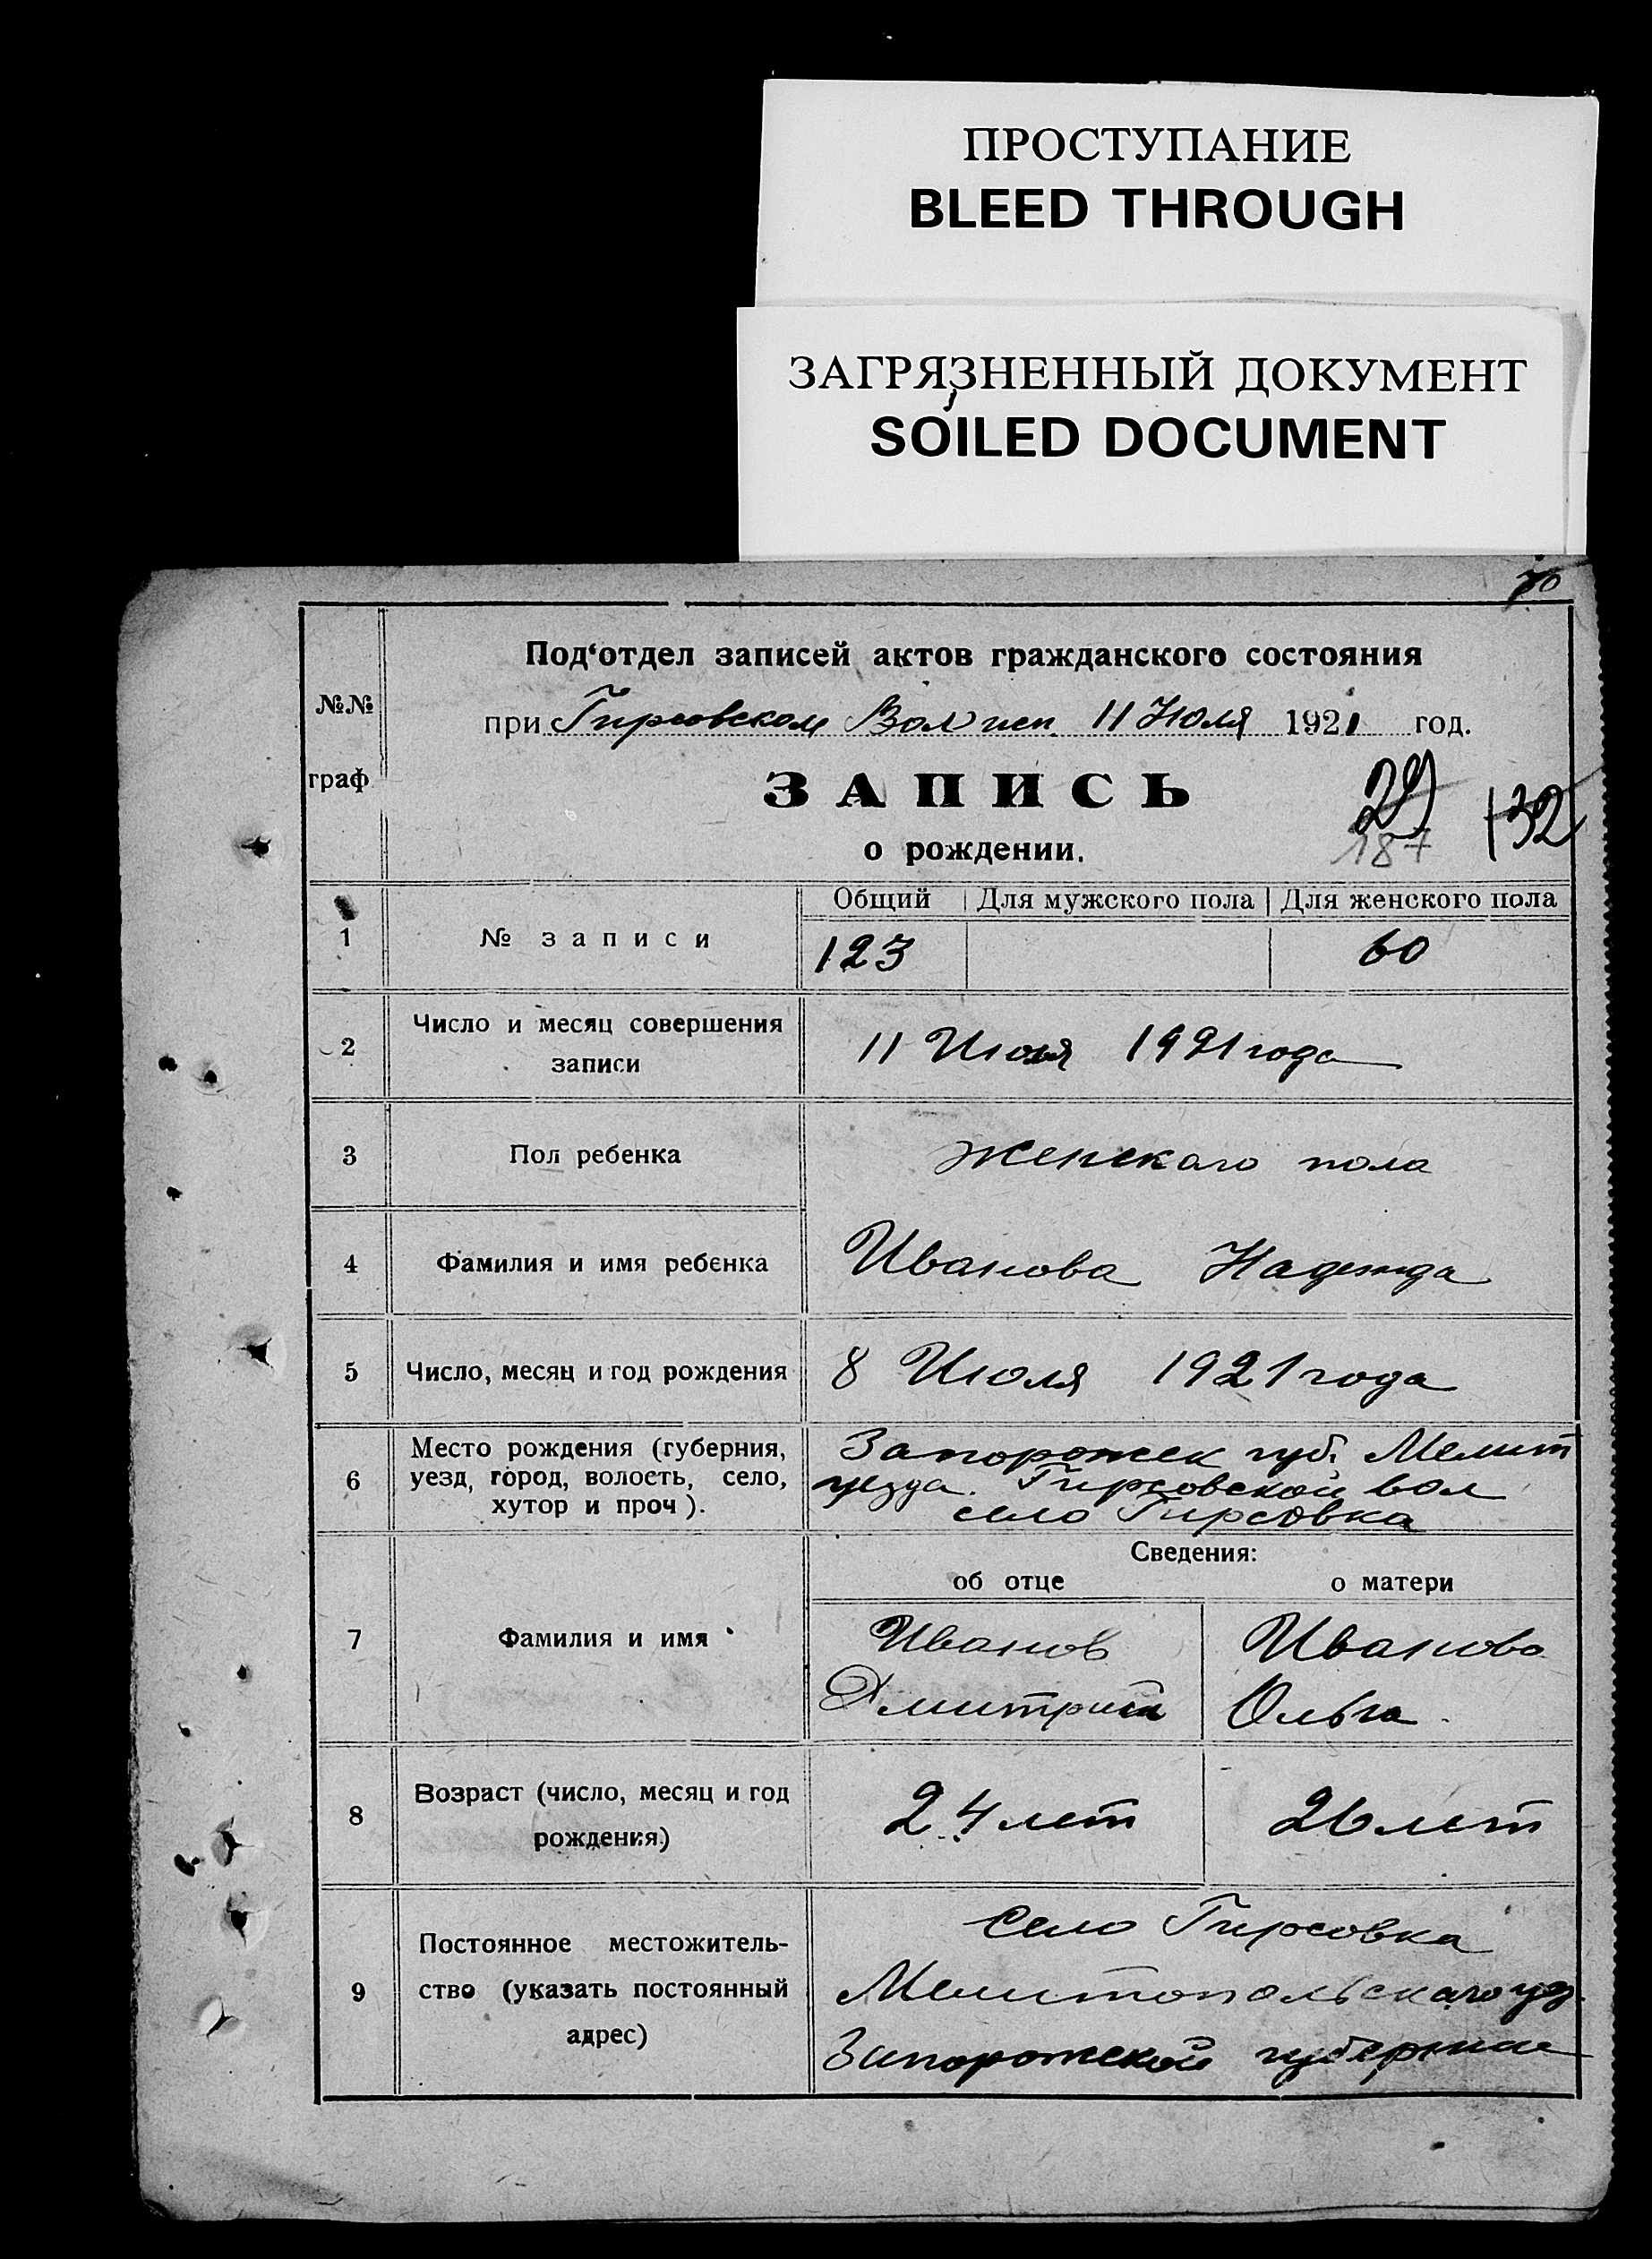 ПРОСТУПАНИЕ
BLEED THROUGH
ЗАГРЯЗНЕННЫЙ ДОКУМЕНТ
SOILED DOCUMENT
70
Под‘отдел записей актов гражданского состояния
№№
граф
при Гирсовском Вол исп. 11 Июля 1921 год.
ЗАПИСЬ
29
132
187
о рождении.
Общий Для мужского пола Для женского пола
1 № записи 123 60
2 Число и месяц совершения
записи
11 Июля 1921 года
3 Пол ребенка женскаго пола
4 Фамилия и имя ребенка Иванова Надежда
5 Число, месяц и год рождения 8 Июля 1921 года
6 Место рождения (губерния,
уезд, город, волость, село,
хутор и проч).
Запорожск губ. Мелит
уезда. Гирсовской вол
село Гирсовка
Сведения:
об отце о матери
7 Фамилия и имя
Иванов Иванова
Дмитрий Ольга.
8 Возраст (число, месяц и год
рождения)
24 лет 26 лет
9 Постоянное местожитель-
ство (указать постоянный
адрес)
Село Гирсовка
Мелитопольскаго уз.
Запорожской губернии